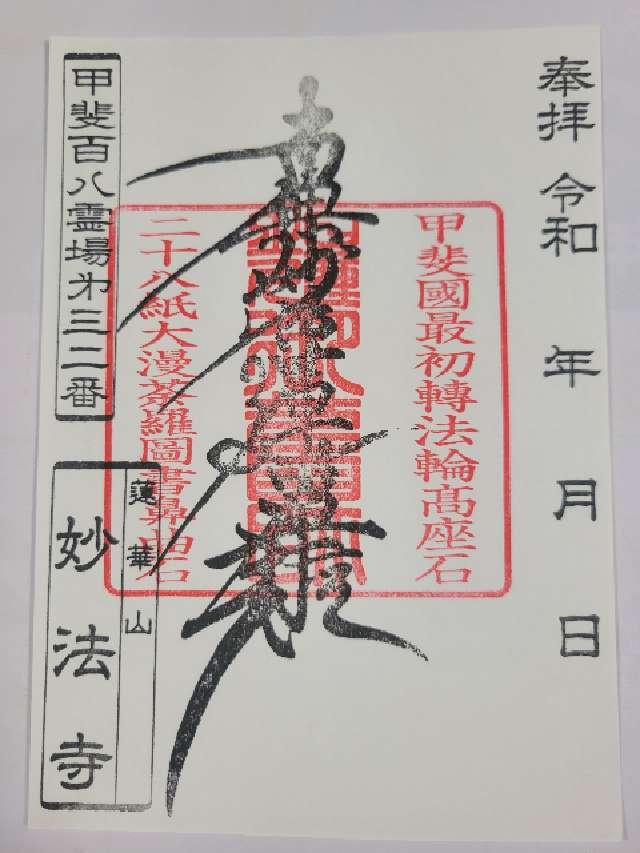 奉拝 令和 年 月 日
甲斐國最初轉法輪髙座石
南無妙法蓮華経
二十八紙大漫荼羅圖書
甲斐百八霊場㐧三二番
蓮華山
妙法寺